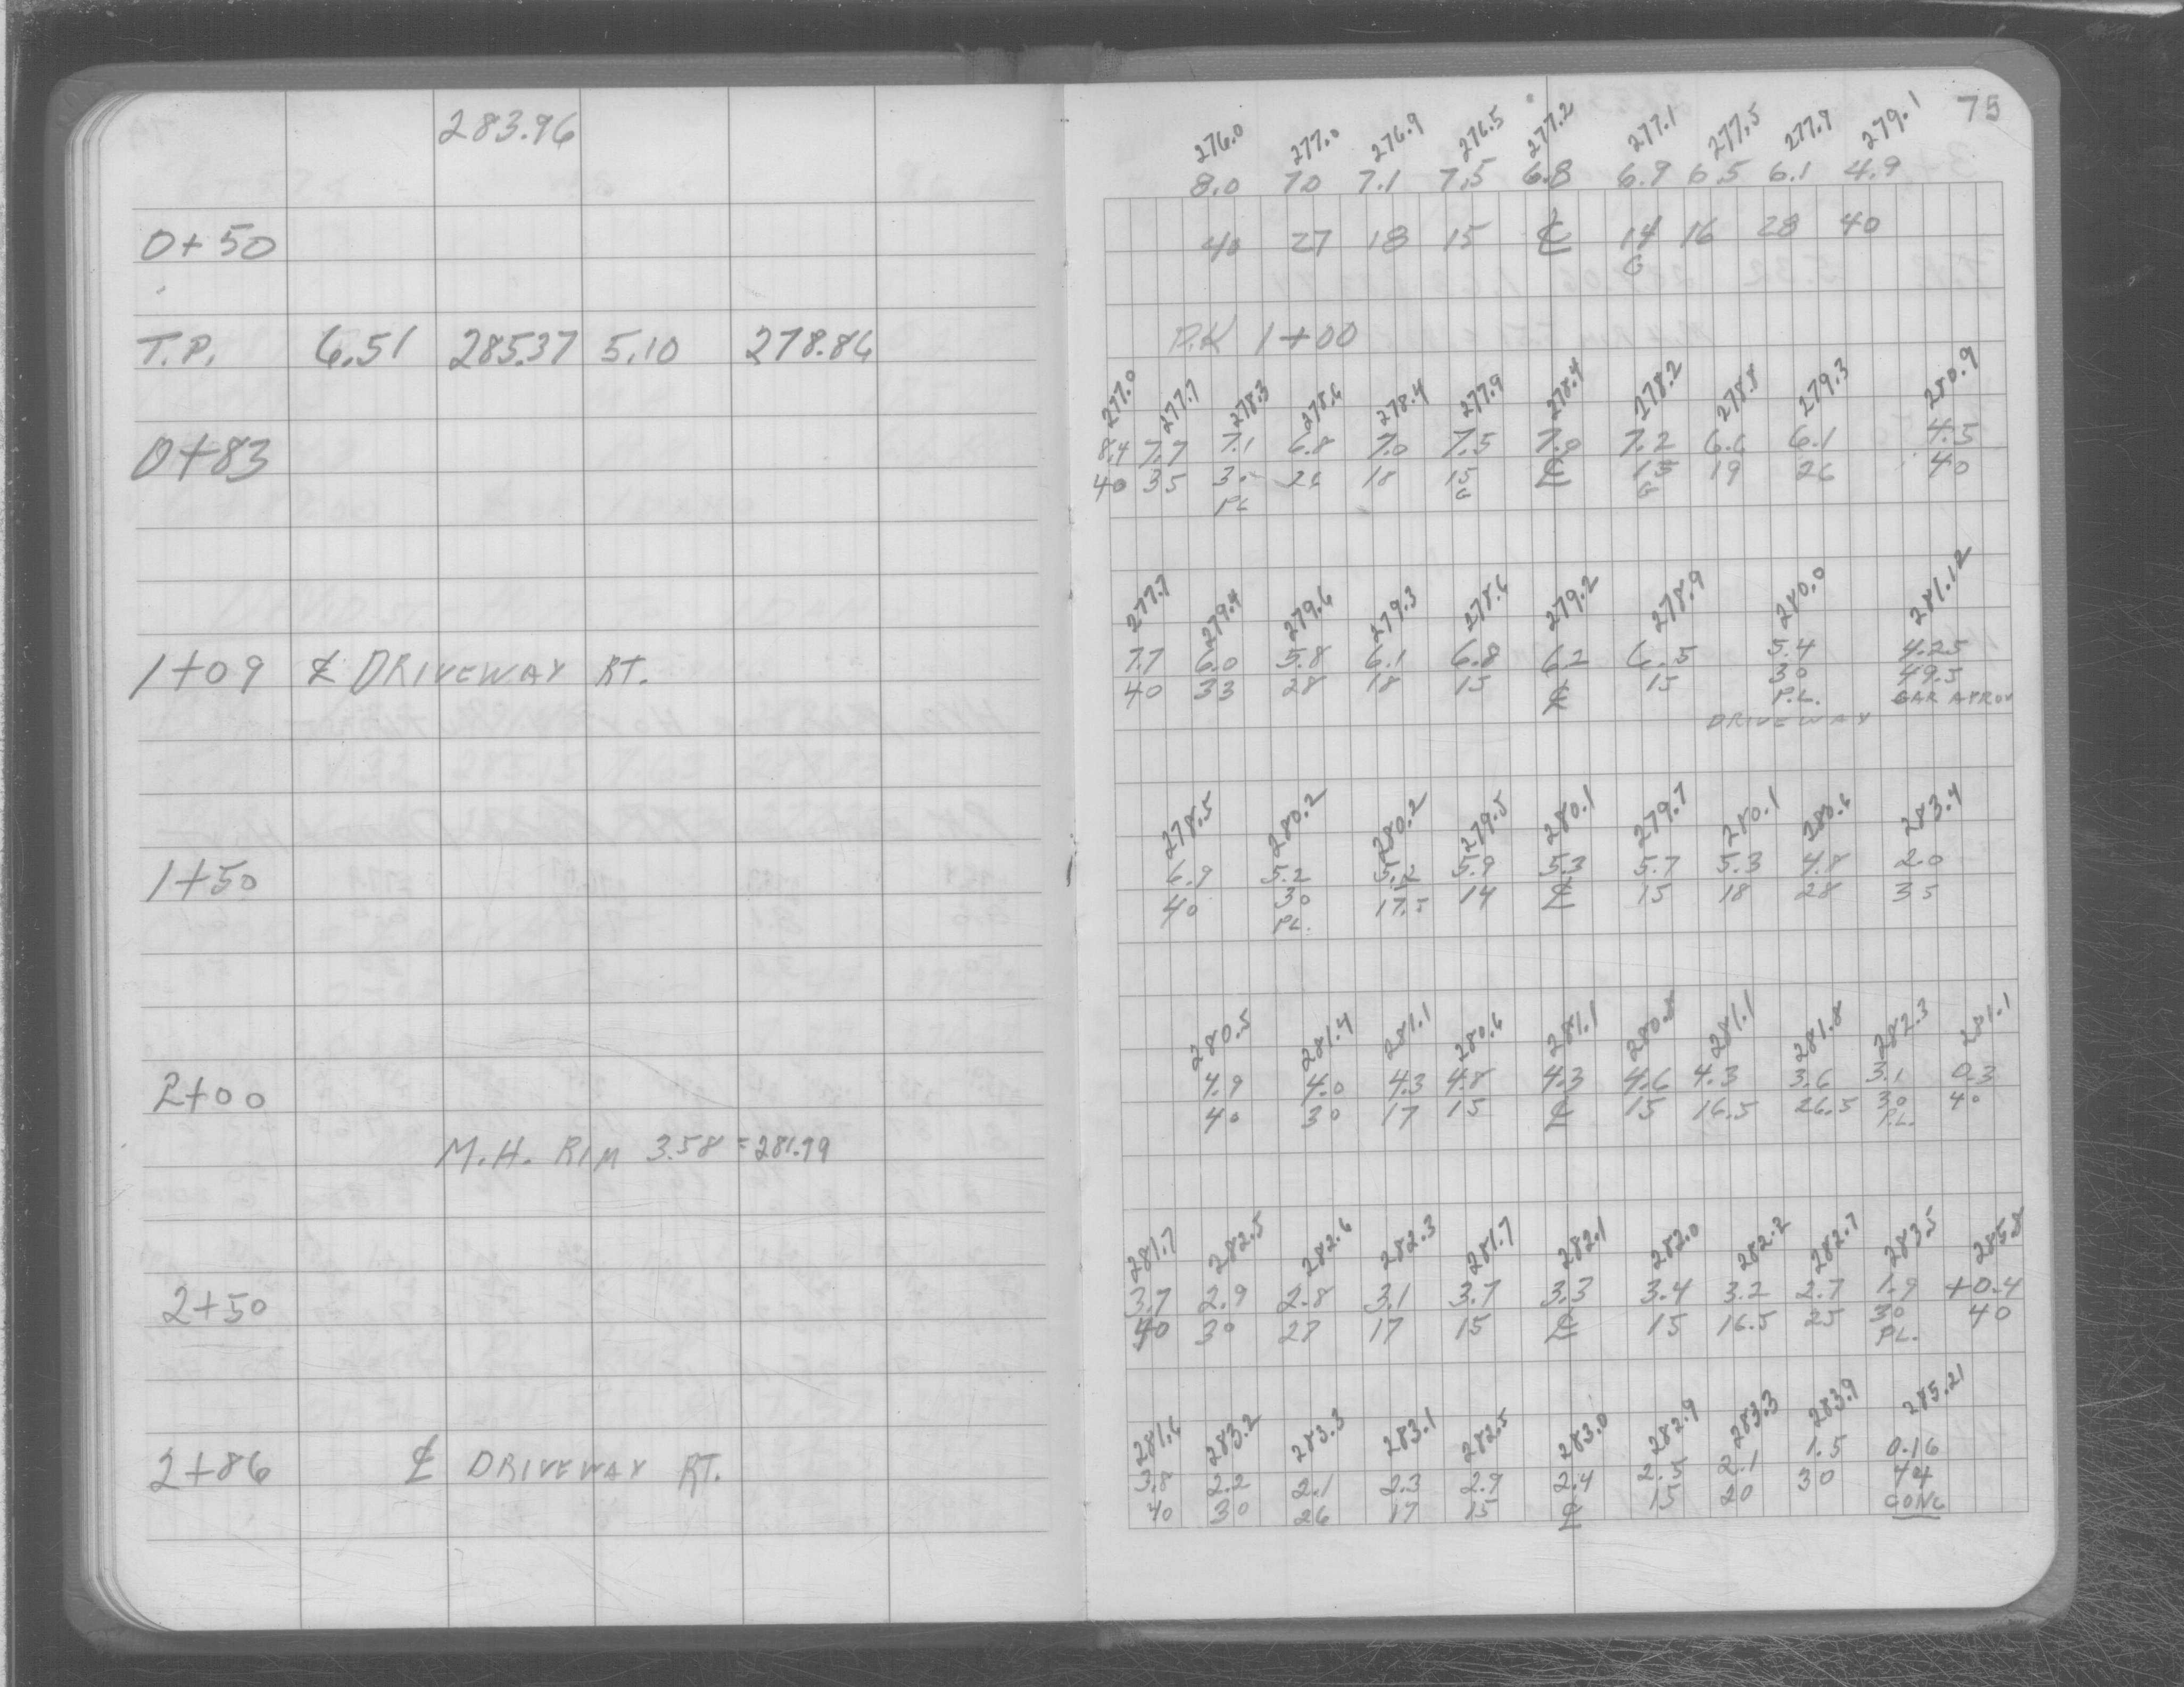 283.96
0+50
T.P. 6.51 285.37 5.10 278.86
0+83
1+09 ℄ DRIVEWAY RT.
1+50
2+00
M.H. RIM 3.58 = 281.79
2+50
2+86 ℄ DRIVEWAY RT.
75
276.0 277.0 276.9 276.5 277.2 277.1 277.5 277.9 279.1
8.0 7.0 7.1 7.5 6.8 6.9 6.5 6.1 4.9
40 27 18 15 ℄ 14 16 28 40
G
P.K 1+00
277.0 277.7 278.3 278.6 278.4 277.9 278.4 278.2 278.8 279.3 280.9
8.4 7.7 7.1 6.8 7.0 7.5 7.0 7.2 6.6 6.1 4.5
40 35 30 26 18 15 ℄ 15 19 26 40
PL G G
277.7 279.4 279.6 279.3 278.6 279.2 278.9 280.0 281.12
7.7 6.0 5.8 6.1 6.8 6.2 6.5 5.4 4.25
40 33 28 18 15 ℄ 15 30 49.5
P.L. GAR APRON
DRIVEWAY
278.5 280.2 280.2 279.5 280.1 279.7 280.1 280.6 283.4
6.9 5.2 5.2 5.9 5.3 5.7 5.3 4.8 2.0
40 30 17.5 14 ℄ 15 18 28 35
PL.
280.5 281.4 281.1 280.6 281.1 280.8 281.1 281.8 282.3 281.1
4.9 4.0 4.3 4.8 4.3 4.6 4.3 3.6 3.1 0.3
40 30 17 15 ℄ 15 16.5 26.5 30 40
P.L.
281.7 282.5 282.6 282.3 281.7 282.1 282.0 282.2 282.7 283.5 285.8
3.7 2.9 2.8 3.1 3.7 3.3 3.4 3.2 2.7 1.9 +0.4
40 30 27 17 15 ℄ 15 16.5 25 30 40
PL.
281.6 283.2 283.3 283.1 282.5 283.0 282.9 283.3 283.9 285.21
3.8 2.2 2.1 2.3 2.9 2.4 2.5 2.1 1.5 0.16
40 30 26 17 15 ℄ 15 20 30 44
CONC